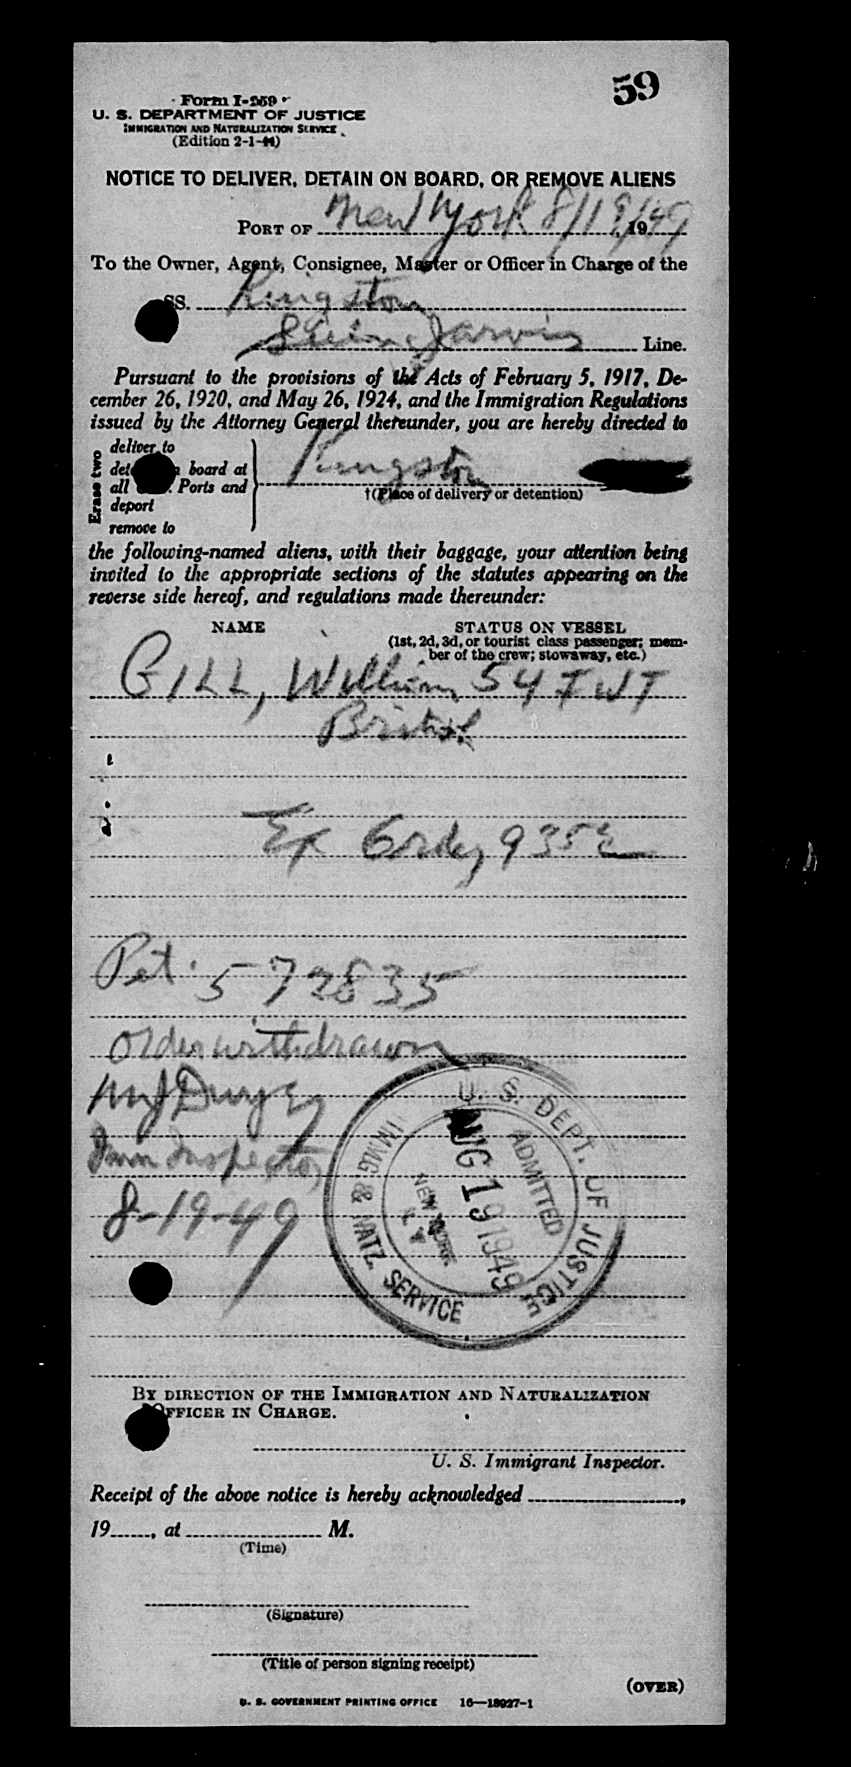 59
Form I-259
U. S. DEPARTMENT OF JUSTICE
IMMIGRATION AND NATURALIZATION SERVICE
(Edition 2-1-44)
NOTICE TO DELIVER, DETAIN ON BOARD, OR REMOVE ALIENS
PORT OF New York 8/19/49, 19
To the Owner, Agent, Consignee, Master or Officer in Charge of the
SS. Kingston
Jarvis Line.
Pursuant to the provisions of the Acts of February 5, 1917, De-
cember 26, 1920, and May 26, 1924, and the Immigration Regulations
issued by the Attorney General thereunder, you are hereby directed to
Erase two
deliver to
board at
all Ports and
deport
remove to
Kingston
†(Place of delivery or detention)
the following-named aliens, with their baggage, your attention being
invited to the appropriate sections of the statutes appearing on the
reverse side hereof, and regulations made thereunder:
NAME STATUS ON VESSEL
(1st, 2d, 3d, or tourist class passenger; mem-
ber of the crew; stowaway, etc.)
GILL, William 54 FWT
British
Ex 9352
Pet. 572835
Order withdrawn
Imm Inspector
8-19-49
U. S. DEPT. OF JUSTICE
IMMIG & NATZ. SERVICE
ADMITTED
AUG 19 1949
NEW YORK
BY DIRECTION OF THE IMMIGRATION AND NATURALIZATION
OFFICER IN CHARGE.
U. S. Immigrant Inspector.
Receipt of the above notice is hereby acknowledged ,
19 , at M.
(Time)
(Signature)
(Title of person signing receipt)
(OVER)
U. S. GOVERNMENT PRINTING OFFICE 16—18927-1